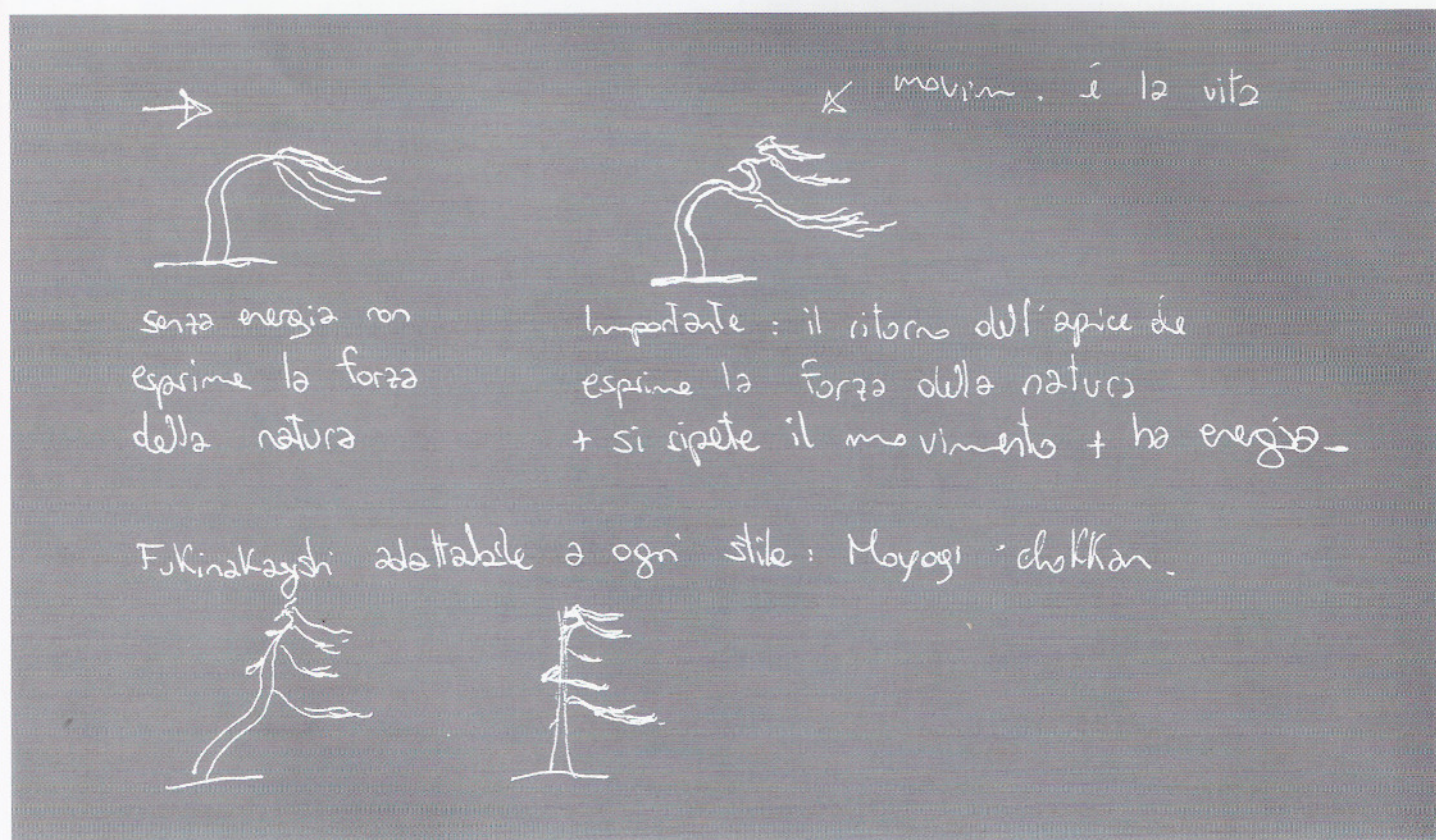 movim. é la vita
senza energia non
esprime la forza
della natura
Importante : il ritorno dell'apice che
esprime la forza della natura
+ si ripete il movimento + ha energia-
Fukinakayshi adattabile a ogni stile : Moyogi - chokkan.